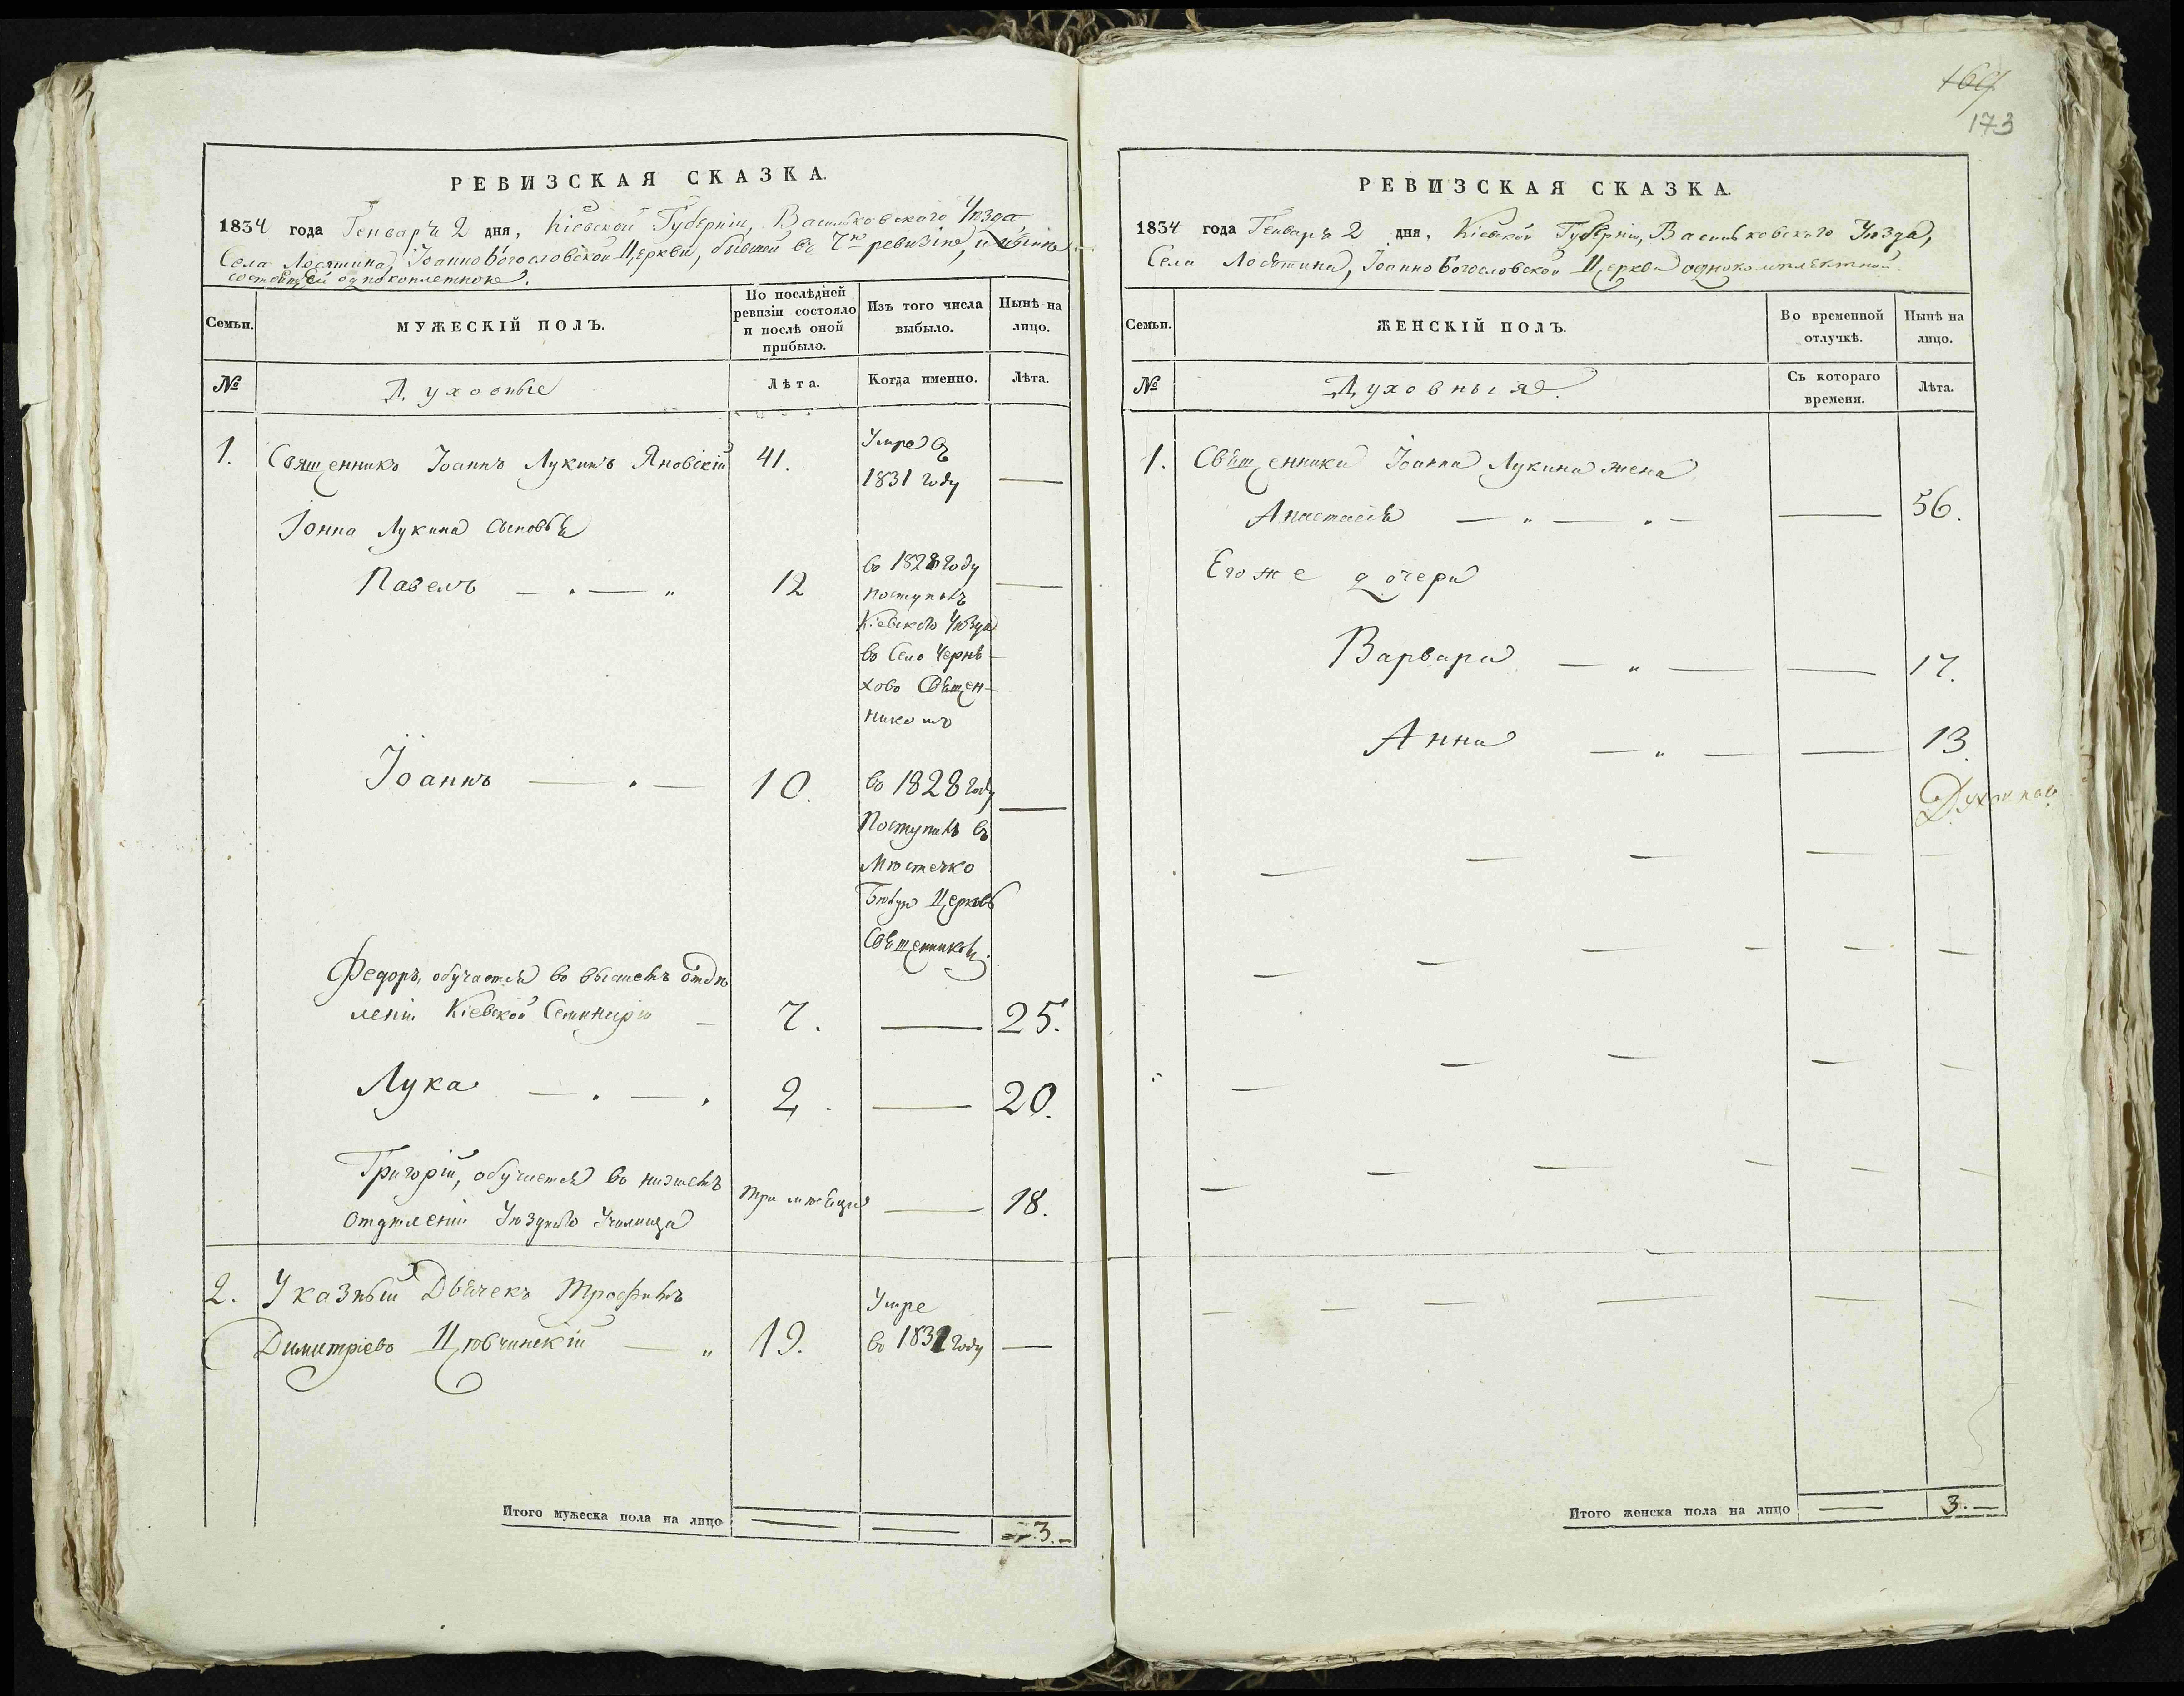 РЕВИЗСКАЯ СКАЗКА.
1834 года Генваря 2 дня, Кіевской Губерніи, Васильковскаго Уѣзда,
Села Лосятина, Іоанно Богословской Церкви, бывшей въ 7й ревизіи, и нынѣ
состоящей
Семьи.
МУЖЕСКІЙ ПОЛЪ.
По послѣдней
ревизіи состояло
и послѣ оной
прибыло.
Изъ того числа
выбыло.
Нынѣ на
лицо.
№
Духовные
Лѣта.
Когда именно.
Лѣта.
1. Священникъ Іоаннъ Лукинъ Яновскій 41.
Умре въ
1831 году —
Іонна Лукина сыновья
Павелъ — . — „ 12
во 1828 году —
поступилъ
Кіевскаго Уѣзда
во Село Черня-
хово Священ-
никомъ
Іоаннъ — . — 10.
во 1828 году —
Поступилъ въ
Мѣстечко
Церковь
Священникомъ.
Федоръ, обучается во высшемъ отдѣ
леніи Кіевской Семинаріи — 7. — 25.
Лука — . — . 2. — 20.
Григорій, обучается во низшемъ
Отдѣленіи Уѣзднаго Училища три мѣсяца — 18.
2. Указный Дьячекъ Трофимъ
Димитріевъ Цѣвчинскій — „ 19.
Умре
во 1831 году —
Итого мужеска пола на лицо — — 3.—
169
173
РЕВИЗСКАЯ СКАЗКА.
1834 года Генваря 2 дня, Кіевской Губерніи, Васильковскаго Уѣзда,
Села Лосятина, Іоанно Богословской Церкви однокомплектной.
Семьи.
ЖЕНСКІЙ ПОЛЪ.
Во временной
отлучкѣ.
Нынѣ на
лицо.
№
Духовныя.
Съ котораго
времени.
Лѣта.
1. Священника Іоанна Лукина жена
Анастасія — „ — „ — — 56.
Его же дочери
Варвара — „ — — 17.
Анна — „ — — 13
Итого женска пола на лицо — 3.—